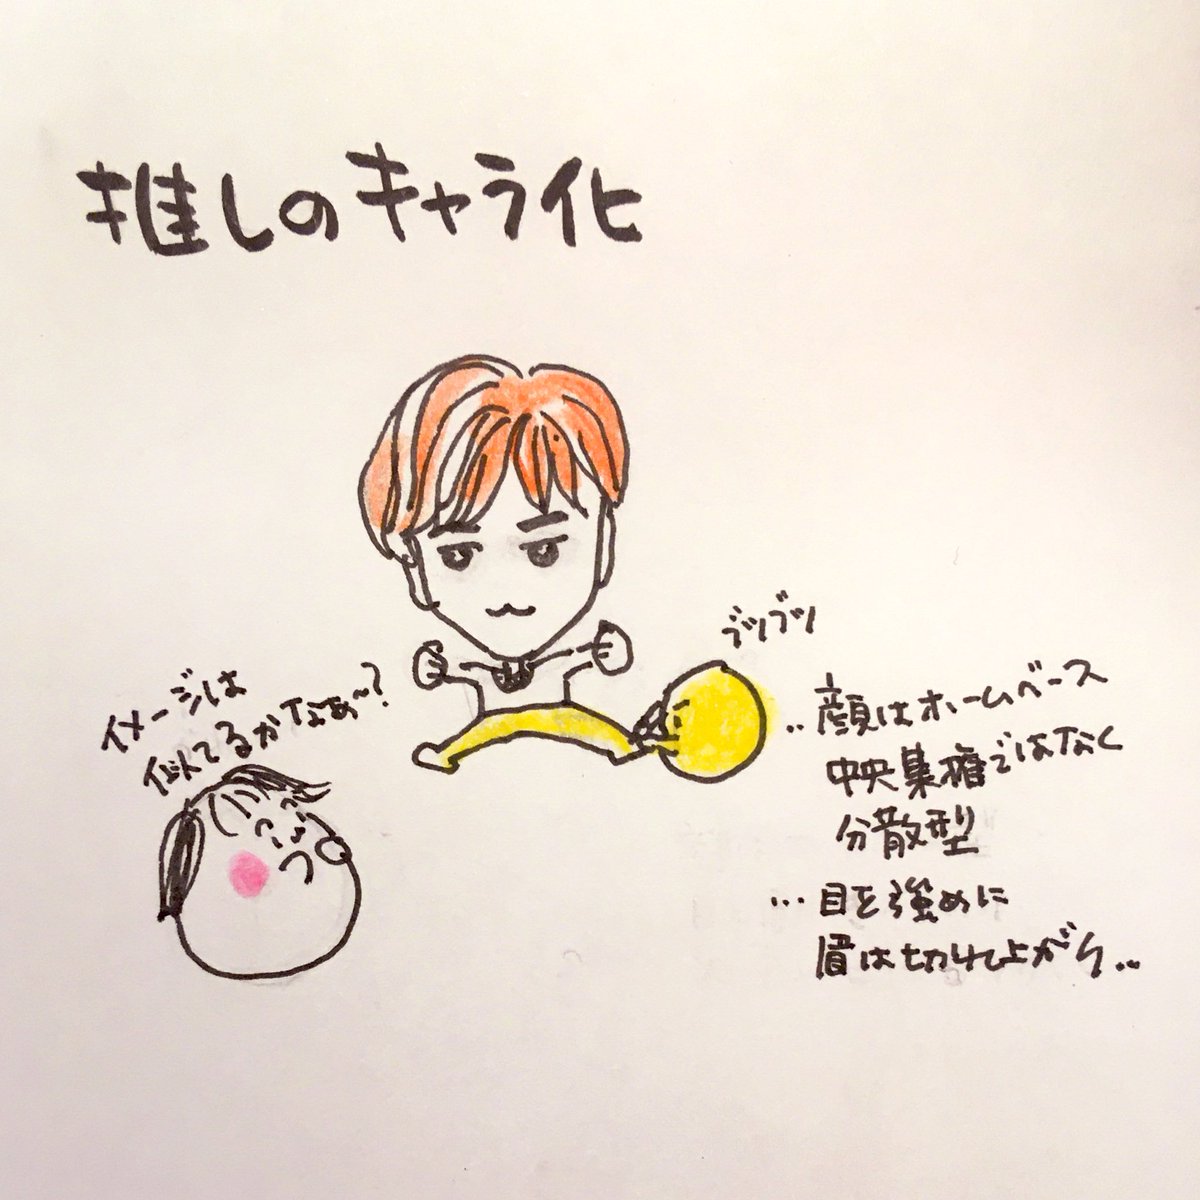 推しのキャラ化
ブツブツ
イメージは
似てるかなぁ〜?
‥顔はホームベース
中央集権ではなく
分散型
…目を強めに
眉は切れ上がり‥